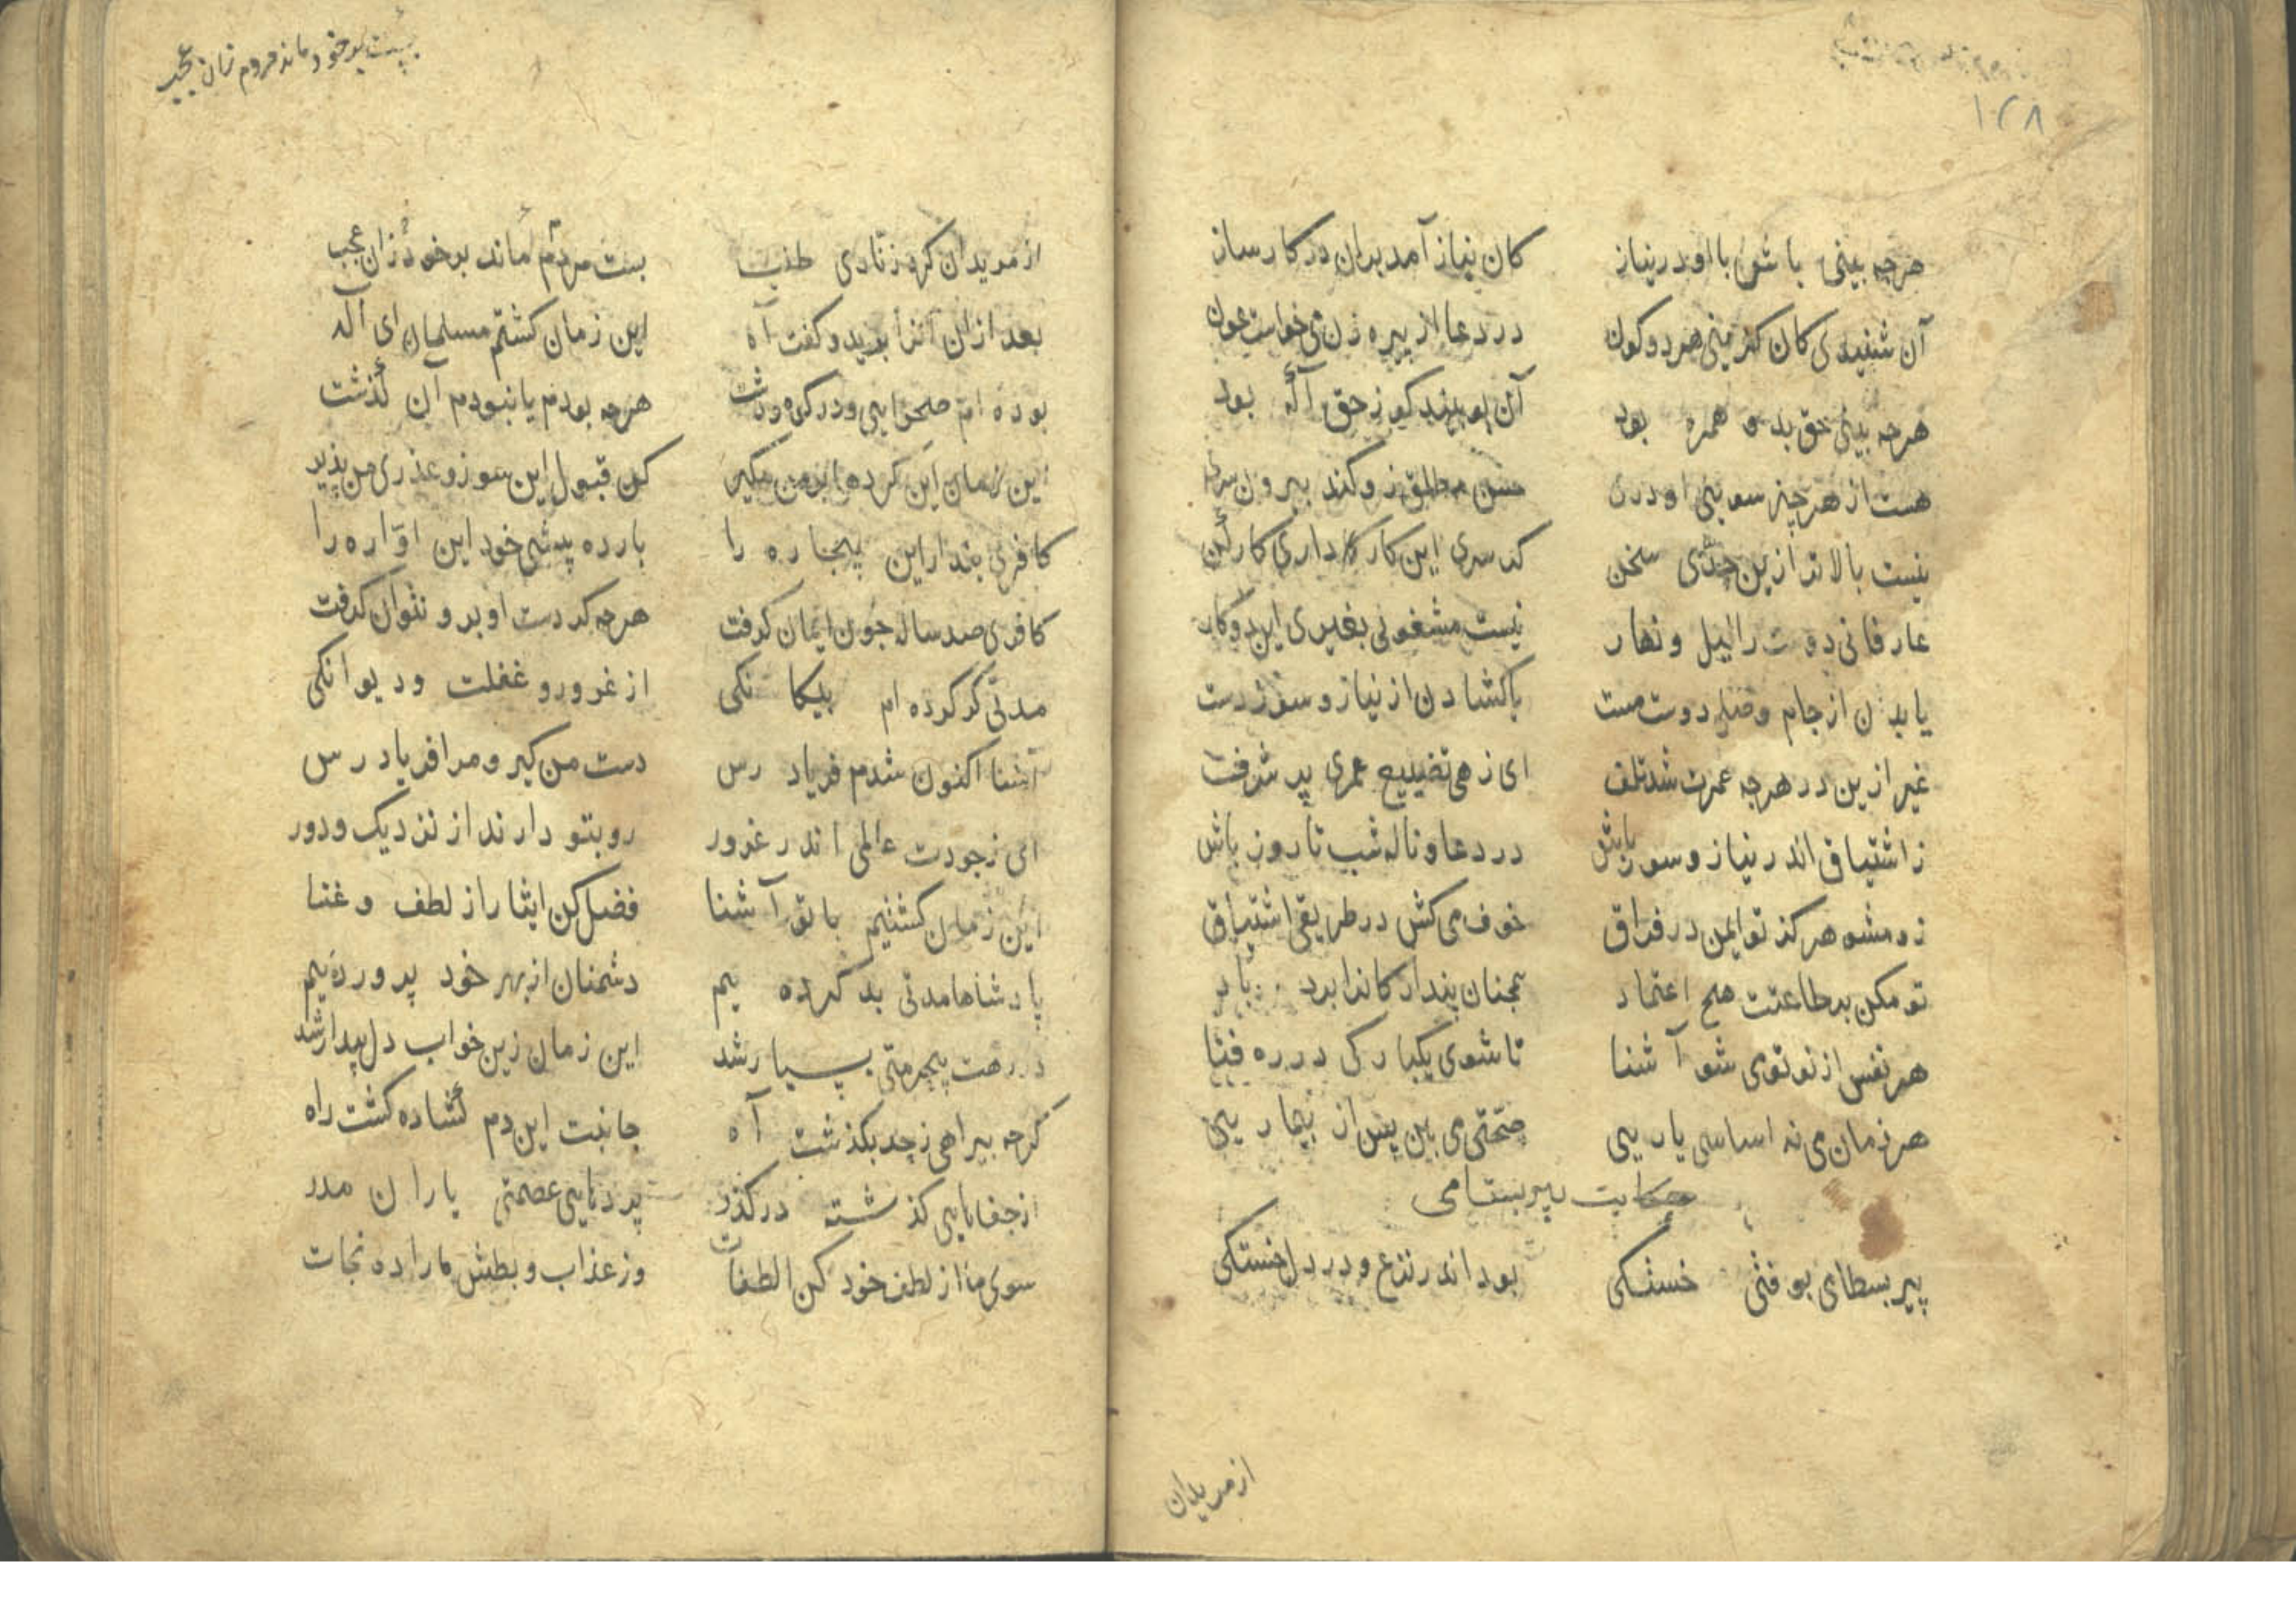 ۱۲۸
هرچه بینی باش با او در نیاز کان نیاز آمد بران در کارساز
آن شنیدی کان کزینی هر دو کون در دعا از پیره زن می خواست عون
هرچه بینی حق بد و همره بود آن بود بیند کو ز حق آگه بود
هست از هر چیز سوینی او درن حسن مطلق زو کند بیرون سره
نیست بالاتر ازین جدی سخن کر سری این کار کار داری کار کن
عارفانی دوست را لیل و نهار نیست مشغولی بغیری این دو کار
یا بدن از جام وصل دوست مست یا کشادن از نیاز و سوز دست
غیر ازین در هرچه عمرت شد تلف ای زهی تضییع عمری پر شرف
ز اشتیاق اندر نیاز و سوز باش در دعا و ناله شب تا روز باش
زو مشو هرکز تو ایمن در فراق خوف می کش در طریقی اشتیاق
تو مکن بر طاعتت هیچ اعتماد همچنان پندار کانرا برد باد
هر نفس از نو توی شو آشنا تا شوی یکبارکی در ره فنا
هر زمان می نه اساسی یاریی صحتی می بین پس از بیماریی
حکایت پیر بستامی
پیر بسطامی بوفتی خستکی بود اندر نزع و در دل خستکی
از مریدان
بست بر خود ماند مردم زان عجب
از مریدان کرد زناری طلب بست مردم ماند بر خود زان عجب
بعد از آن آنرا برید و کفت آه این زمان کشتم مسلمان ای اله
بوده ام صحرایی و در کوه و دشت هرچه بودم یا نبودم آن گذشت
این زمان این کرده ابر من مکیر کن قبول این سوز و عذری من پذیر
کافری پندار این بیچاره را بار ده پیشی خود این اواره را
کافری صد ساله چون ایمان کرفت هرچه کردست او برو نتوان کرفت
مدتی کر کرده ام بیکانکی از غرور و غفلت و دیوانکی
آشنا اکنون شدم فریاد رس دست من کیر و مرا فریاد رس
ای ز جودت عالمی اندر غرور رو بتو دارند از نزدیک و دور
این زمان کشتیم با تو آشنا فضل کن ایثار از لطف و غنا
پادشاها مدتی بد کرده یم دشمنان از بهر خود پرورده یم
در رهت بیحرمتی بسیار شد این زمان زین خواب دل بیدار شد
کرچه بیراهی ز چد بکذشت آه جانبت این دم گشاده کشت راه
از جفاهایی کذشته در کذر پردهایی عصمتی یاران مدر
سوی ما از لطف خود کن التفات وز عذاب و بطش ما را ده نجات